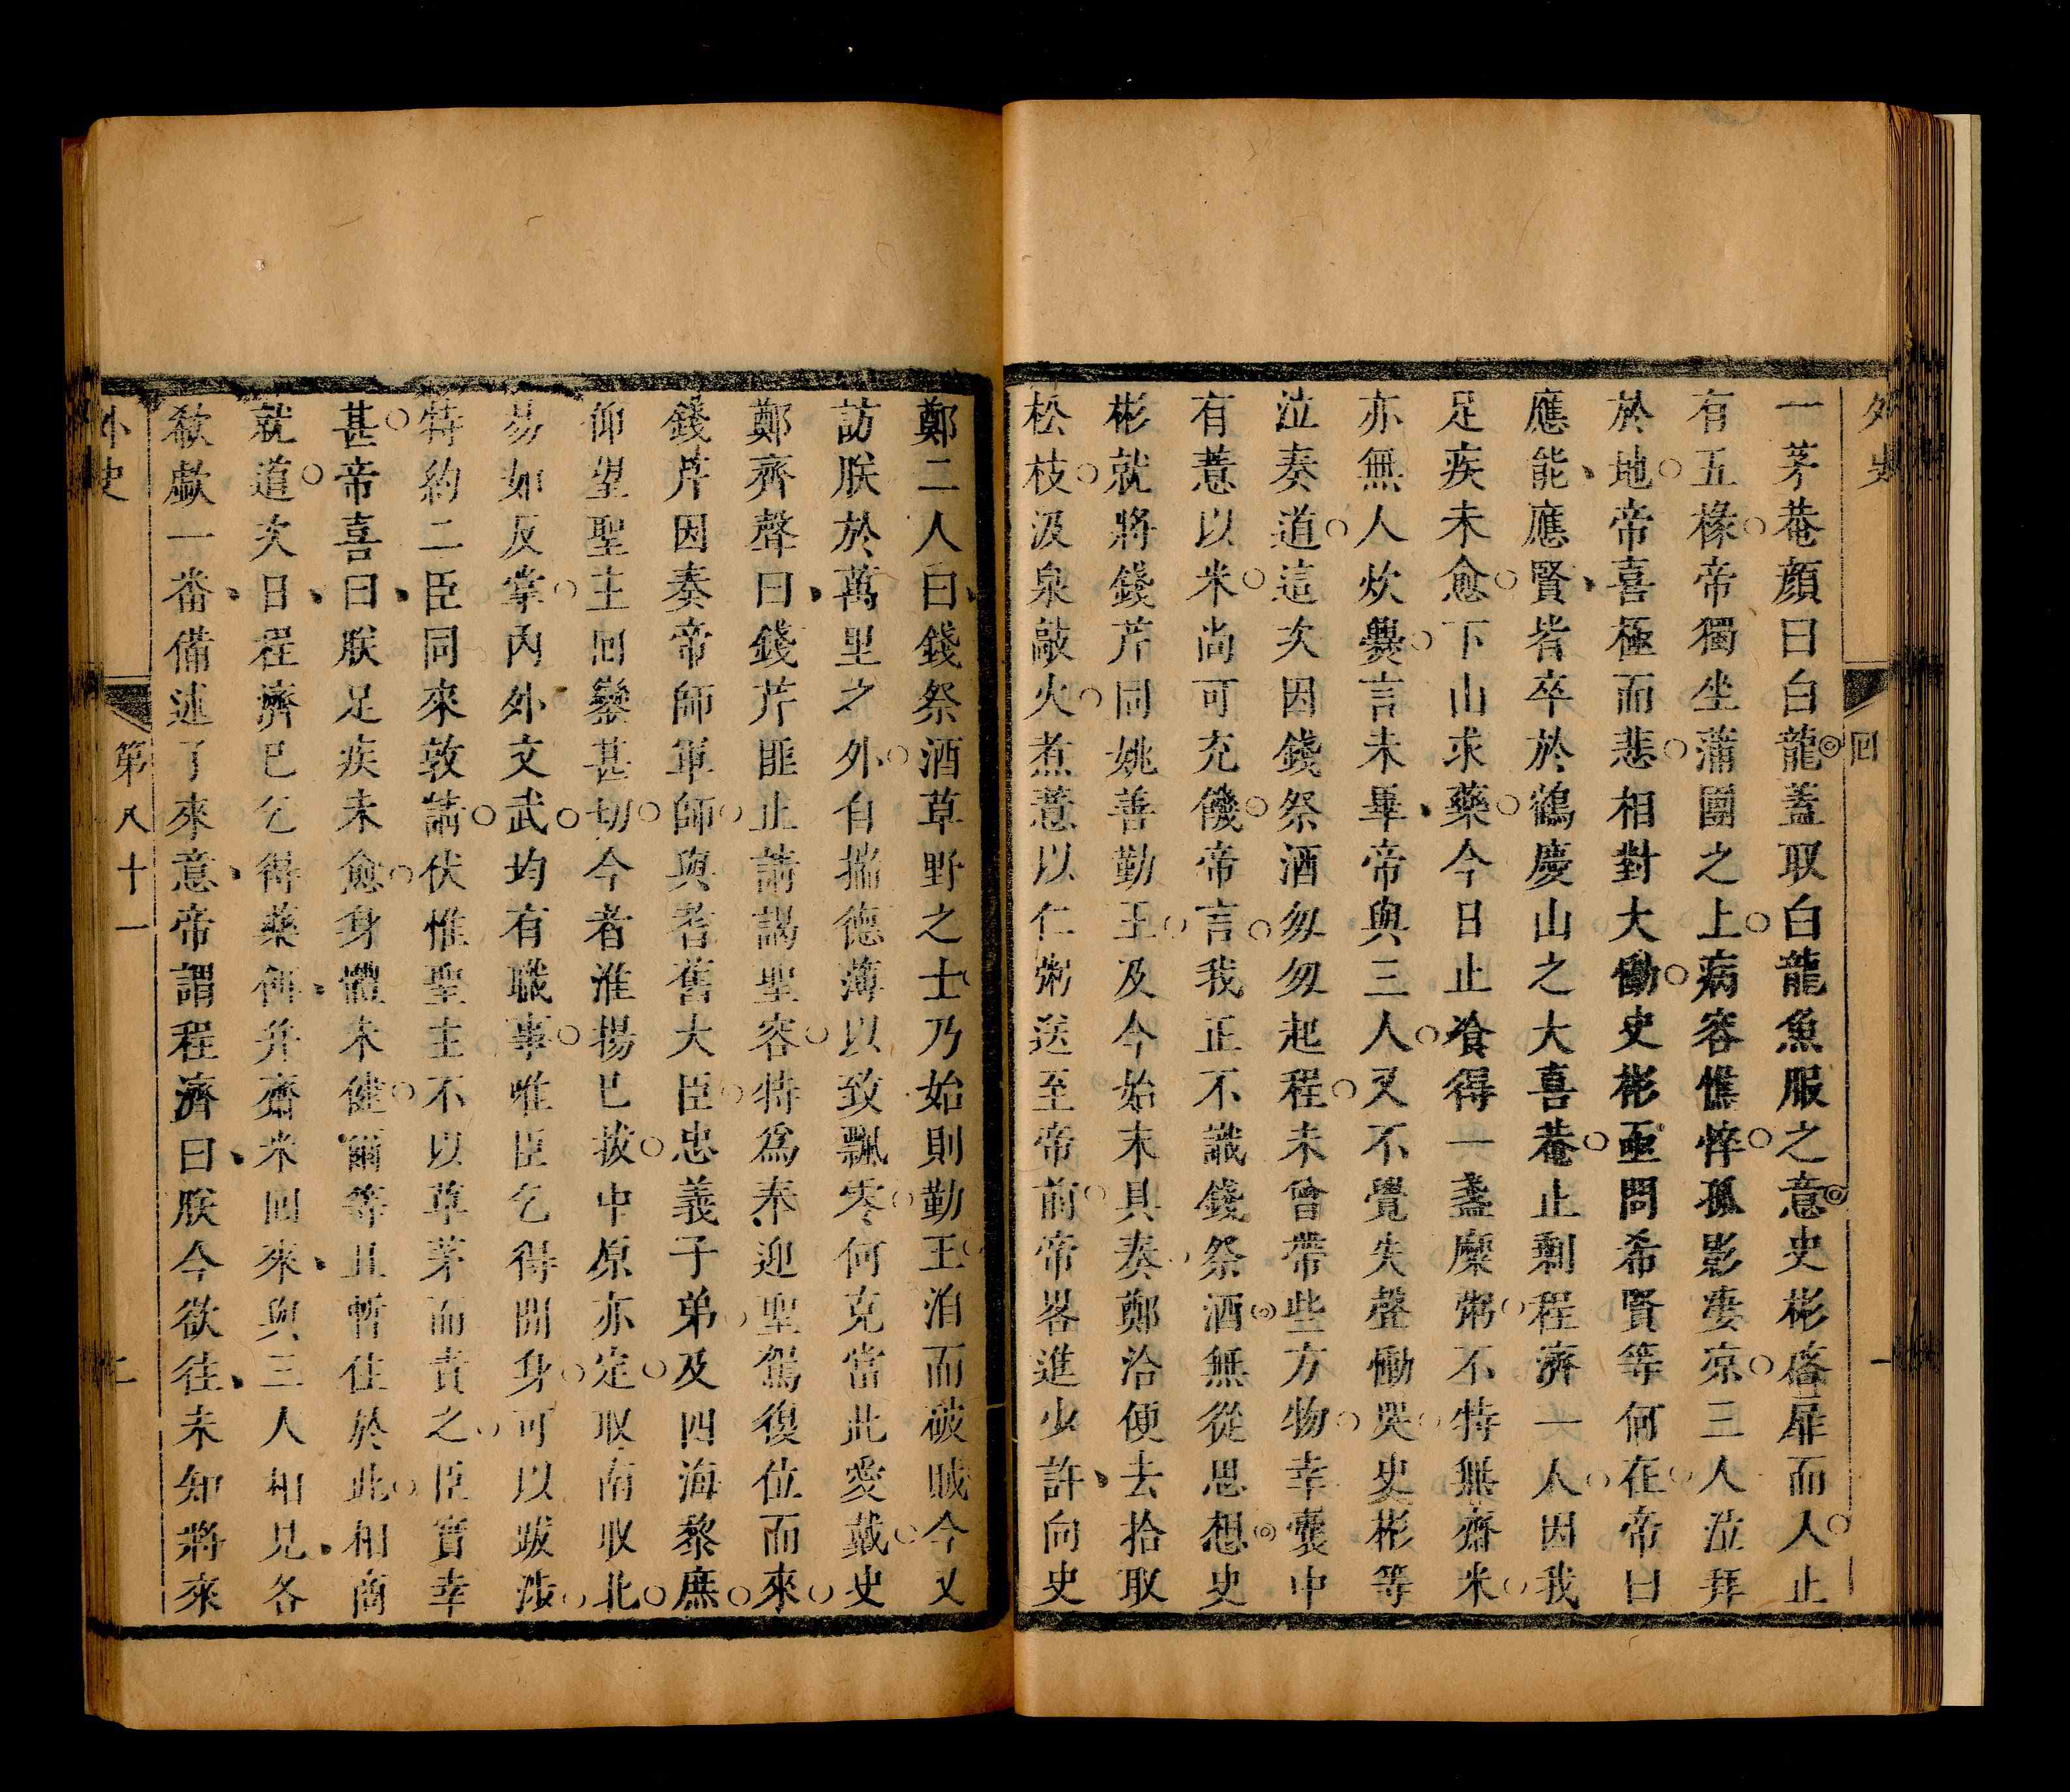 外史
回
一
一茅菴顔曰白龍蓋取白龍魚服之意史彬啓扉而入止
有五椽帝獨坐蒲團之上病容憔悴孤影凄凉三人泣拜
於地帝喜極而悲相對大慟史彬亟問希賢等何在帝曰
應能應賢皆卒於鶴慶山之大喜菴止剩程濟一人因我
足疾未愈下山求藥今日止飡得一盞糜粥不特無齋米
亦無人炊爨言未畢帝與三人又不覺失聲慟哭史彬等
泣奏道這次因錢祭酒匆匆起程未曾帶些方物幸囊中
有薏以米尚可充饑帝言我正不識錢祭酒無從思想史
彬就將錢芹同姚善勤王及今始末具奏鄭洽便去拾取
松枝汲泉敲火煮薏以仁粥送至帝前帝畧進少許向史
鄭二人曰錢祭酒草野之士乃始則勤王洎而破賊今又
訪朕於萬里之外自揣德薄以致飄零何克當此愛戴史
鄭齊聲曰錢芹匪止請謁聖容特爲奉迎聖駕復位而來
錢芹因奏帝師軍師與耆舊大臣忠義子弟及四海黎庶
仰望聖主回鑾甚切今者淮揚已拔中原亦定取南收北
易如反掌內外文武均有職事唯臣乞得閒身可以跋涉
特約二臣同來敦請伏惟聖主不以草茅而責之臣實幸
甚帝喜曰朕足疾未愈身體未健爾等且暫住於此相商
就道次日程濟已乞得藥餌并齋米回來與三人相見各
欷歔一番備述了來意帝謂程濟曰朕今欲往未知將來
外史
第八十一
二